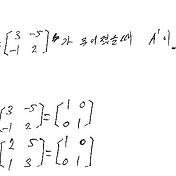 = [3 -5
-1 2] 가 주어졌을때 A¹
3 -5
-1 2] = [1 0
0 1]
2 5
1 3] = [1 0
0 1]